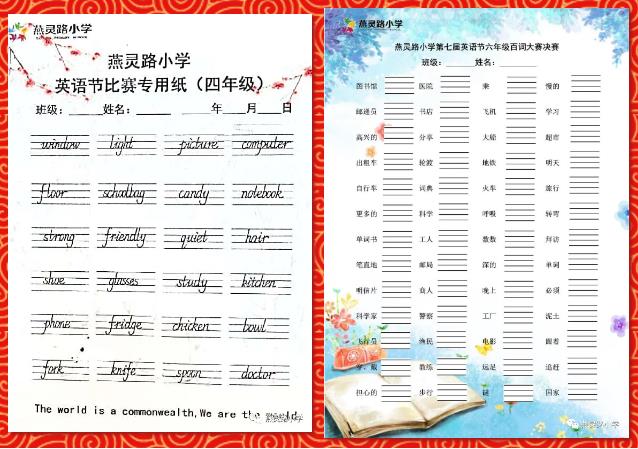 燕灵路小学
燕灵路小学
英语节比赛专用纸（四年级）
班级：　姓名：　年　月　日
window light picture computer
floor schoolbag candy notebook
strong friendly quiet hair
shoe glasses study kitchen
phone fridge chicken bowl
fork knife spoon doctor
The world is a commonwealth,We are the
燕灵路小学
燕灵路小学
燕灵路小学第七届英语节六年级百词大赛决赛
班级：　姓名：
图书馆 医院 乘 慢的
邮递员 书店 飞机 学习
高兴的 分享 大船 超市
出租车 轮渡 地铁 明天
自行车 词典 火车 旅行
更多的 科学 呼吸 转弯
单词书 工人 数数 拜访
笔直地 邮局 深的 单词
明信片 商人 晚上 必须
科学家 警察 工厂 泥土
飞行员 渔民 电影 跟着
教练 远足 追赶
担心的 步行 谜 国家
燕灵路小学